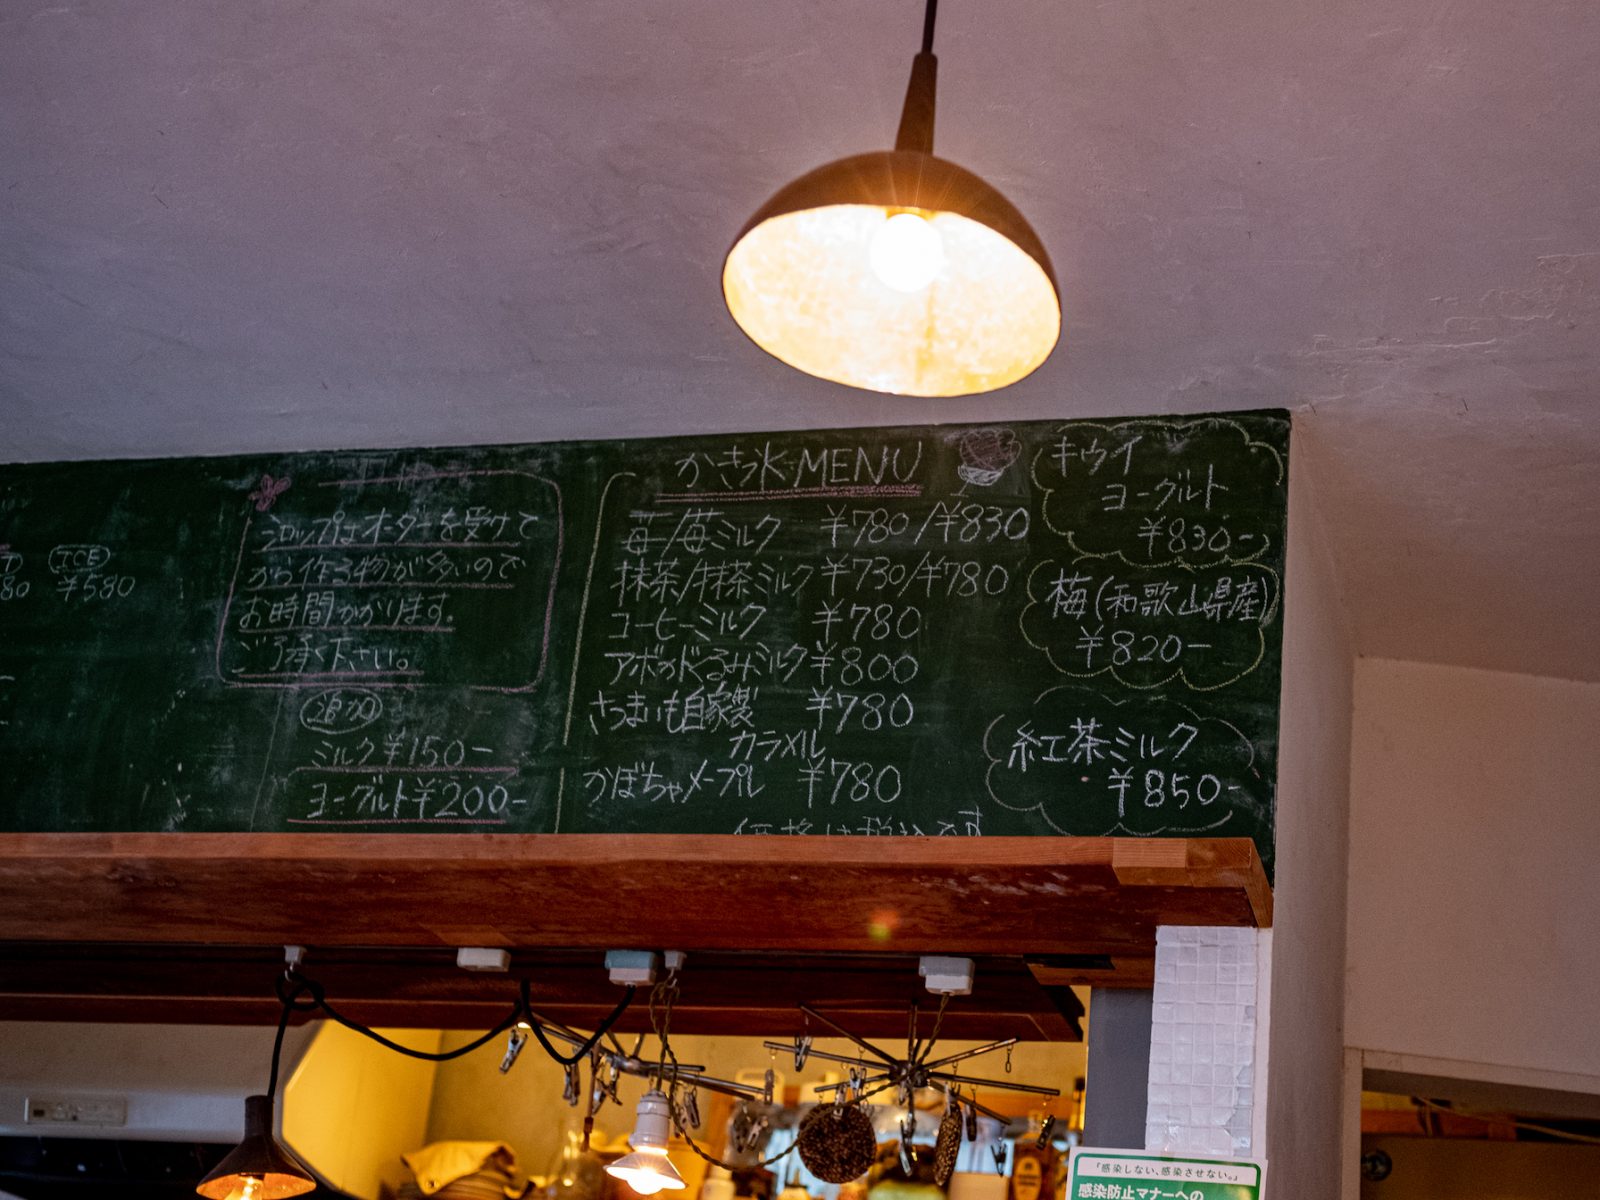 ICE
80 ¥580
シロップはオーダーを受けて
から作る物が多いので
お時間かかります。
ご了承下さい。
追加
ミルク ¥150-
ヨーグルト ¥200-
かき氷 MENU
苺/苺ミルク ¥780/¥830
抹茶/抹茶ミルク ¥730/¥780
コーヒーミルク ¥780
アボカドくるみミルク ¥800
さつまいも自家製 ¥780
カラメル
かぼちゃメープル ¥780
価格は税込です
キウイ
ヨーグルト
¥830-
梅(和歌山県産)
¥820-
紅茶ミルク
¥850-
「感染しない、感染させない。」
感染防止マナーへの